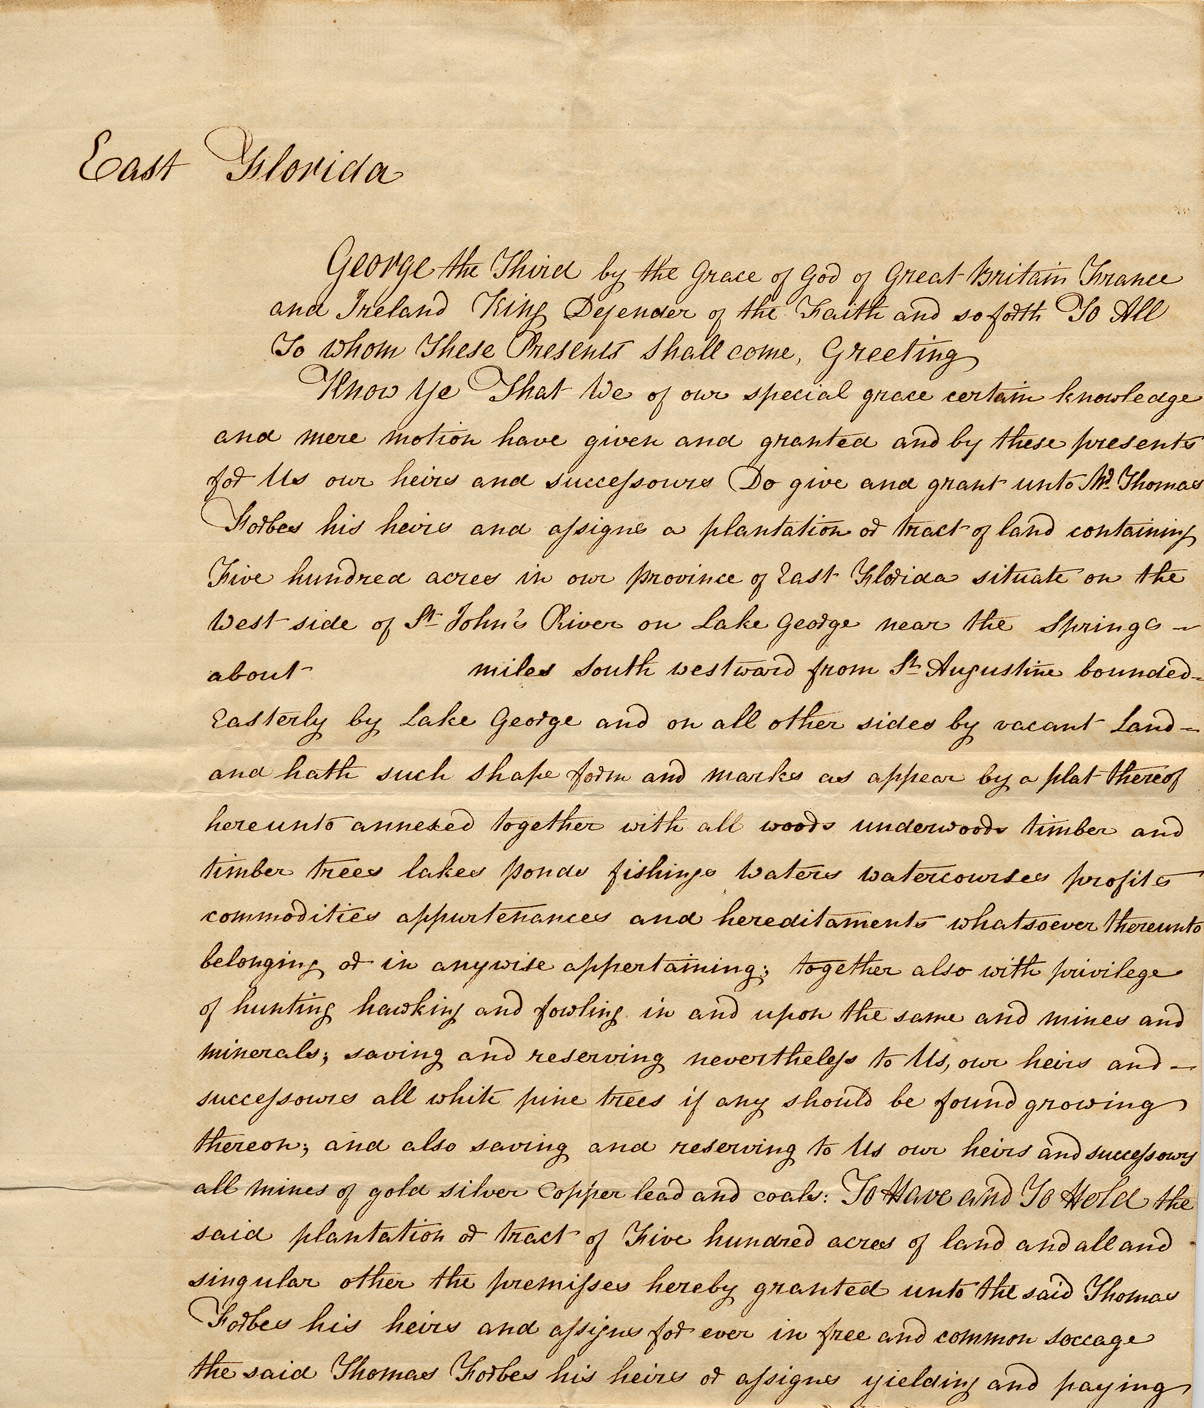 East Florida
George the Third by the Grace of God of Great Britain France
and Ireland King Defender of the Faith and so forth To All
To whom These Presents shall come, Greeting
Know Ye That We of our special grace certain knowledge
and mere motion have given and granted and by these presents
for Us our heirs and successours Do give and grant unto Mr. Thomas
Forbes his heirs and assigns a plantation or tract of land containing
Five hundred acres in our province of East Florida situate on the
West side of St. John's River on Lake George near the Springs –
about miles South westward from St. Augustine bounded –
Easterly by Lake George and on all other sides by vacant Land –
and hath such shape form and marks as appear by a plat thereof
hereunto annexed together with all woods underwoods timber and
timber trees lakes ponds fishings waters watercourses profits
commodities appurtenances and hereditaments whatsoever thereunto
belonging or in anywise appertaining; together also with privilege
of hunting hawking and fowling in and upon the same and mines and
minerals; saving and reserving nevertheless to Us, our heirs and –
successours all white pine trees if any should be found growing
thereon; and also saving and reserving to Us our heirs and successours
all mines of gold silver Copper lead and coals: To Have and To Hold the
said plantation or tract of Five hundred acres of land and all and
singular other the premisses hereby granted unto the said Thomas
Forbes his heirs and assigns for ever in free and common soccage
the said Thomas Forbes his heirs or assigns yielding and paying